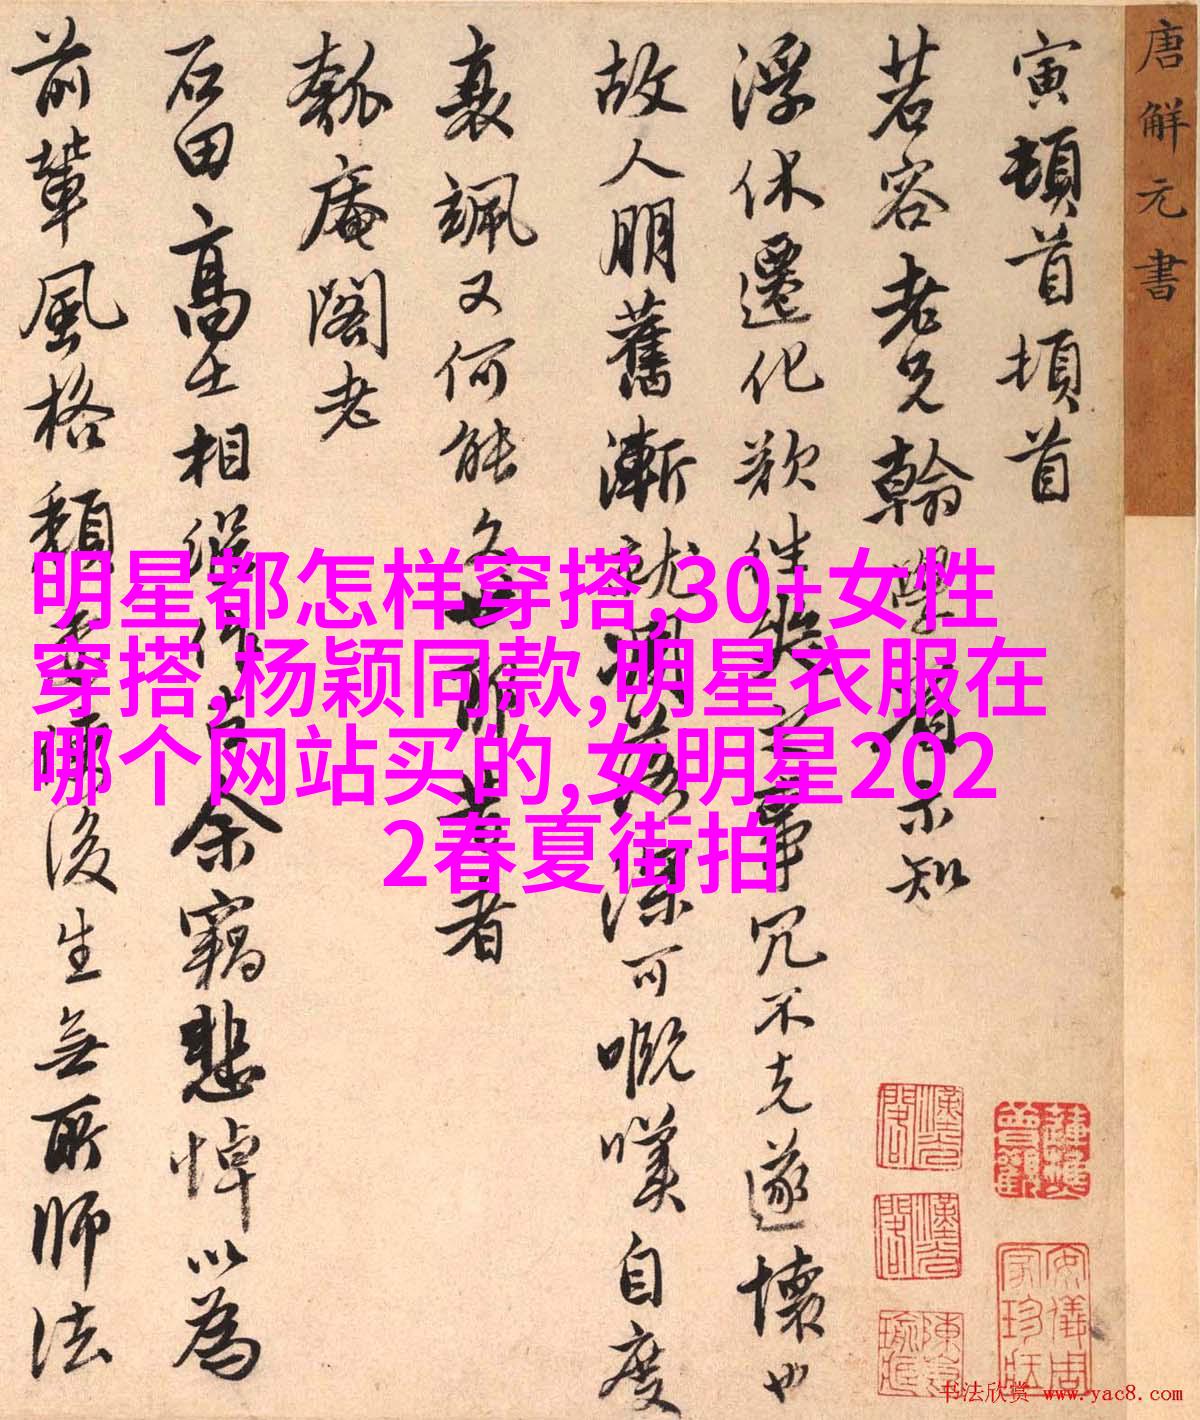 唐解元書
寅頓首頓首
若容老兄翰學
不知
浮休遷化欲往
事冗不克遂懷也
故人朋舊漸就凋落深可嘅嘆自度
衰颯又何能久世耶昔者
匏庵閣老
石田高士相繼作古余竊悲悼以為
前輩風格頹
後生無所師法
明星都怎样穿搭,30+女性
穿搭,杨颖同款,明星衣服在
哪个网站买的,女明星202
2春夏街拍
书法欣赏 www.yac8.com